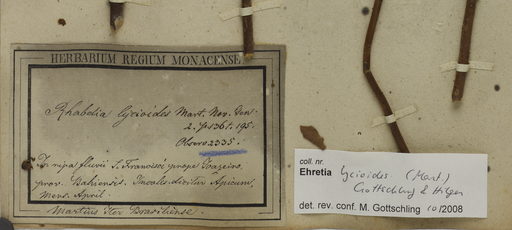 HERBARIUM REGIUM MONACENSE
Rhabdia lycioides Mart. Nov. Gen.
2. p. 136. t. 195.
Observ. 2335.
In ripa fluvii S. Francisci prope Joazeiro,
prov. Bahiensis. Incolis dicitur
Mens. April.
Martius Iter Brasiliense.
coll. nr.
Ehretia lycioides (Mart.)
Gottschling & Hilger
det. rev. conf. M. Gottschling 10/2008